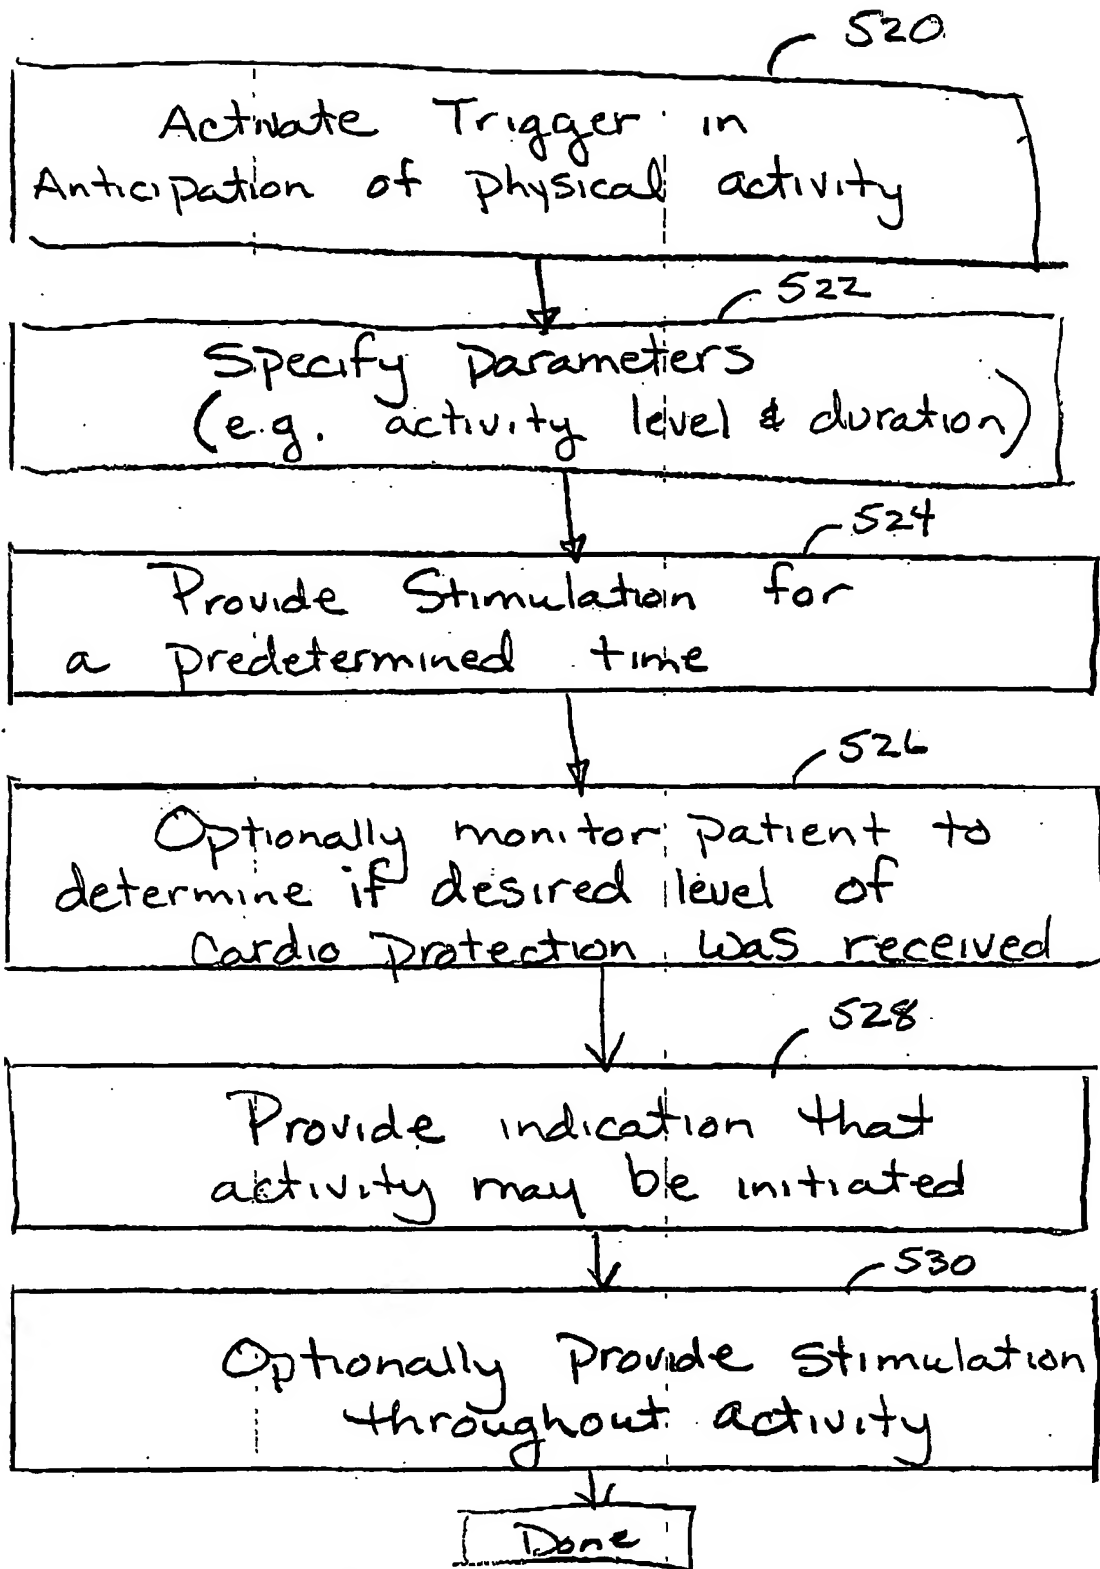 520
Activate Trigger in
Anticipation of physical activity
522
Specify parameters
(e.g. activity level & duration)
524
Provide Stimulation for
a predetermined time
526
Optionally monitor patient to
determine if desired level of
Cardio protection was received
528
Provide indication that
activity may be initiated
530
Optionally Provide Stimulation
throughout activity
Done